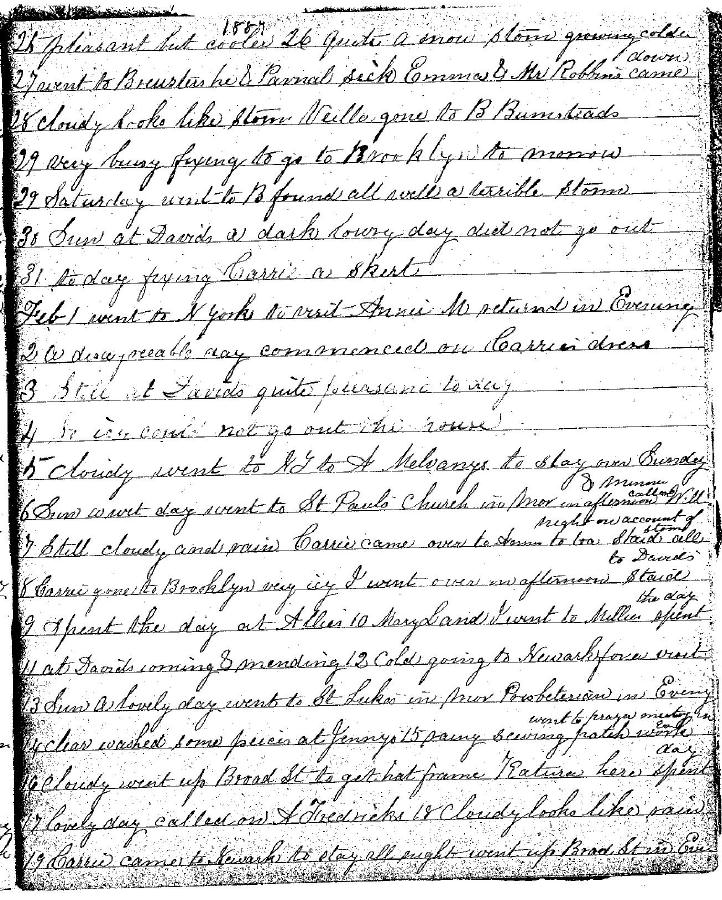 1887
25 pleasant but cooler 26 quite a snow storm growing colder
down
27 went to Brewsters he & Parnal sick Emma & Mr Robbins came
28 cloudy looks like storm gone to B Bumsteads
29 very busy fixing to go to Brooklyn to morrow
29 Saturday went to B found all well a terrible storm
30 Sun at Davids a dark lowry day did not go out
31 to day fixing Carrie a skert
Feb 1 went to N York to visit Annie M returnd in Evening
2 a disagreeable day commenced on Carries dress
3 Still at Davids quite pleasant to day
4 So icy could not go out the house
5 cloudy went to NY to A Melvanys to stay over Sunday
& Minnie
called
6 Sun a wet day went to St Pauls Church in Mor in afternoon Will
night on account of
storm
7 Still cloudy and rain Carrie came over to to tea Staid all
to Davids
8 Carrie gone to Brooklyn very icy I went over in afternoon Staid
the day
9 Spent the day at Allies 10 Mary L and I went to Millies spent
11 at Davids & mending 12 Cold going to Newark for a visit
13 Sun a lovely day went to St Lukes in Mor Presbeterian in Eveng
went to prayer meeting in
Eve
14 clear washed some peices at Jennys 15 rainy sewing patch work
day
16 cloudy went up Broad St to get hat frame here spent
17 lovely day called on A Fredricks 18 Cloudy looks like rain
19 Carrie came to Newark to stay all night went up Broad St in Eve